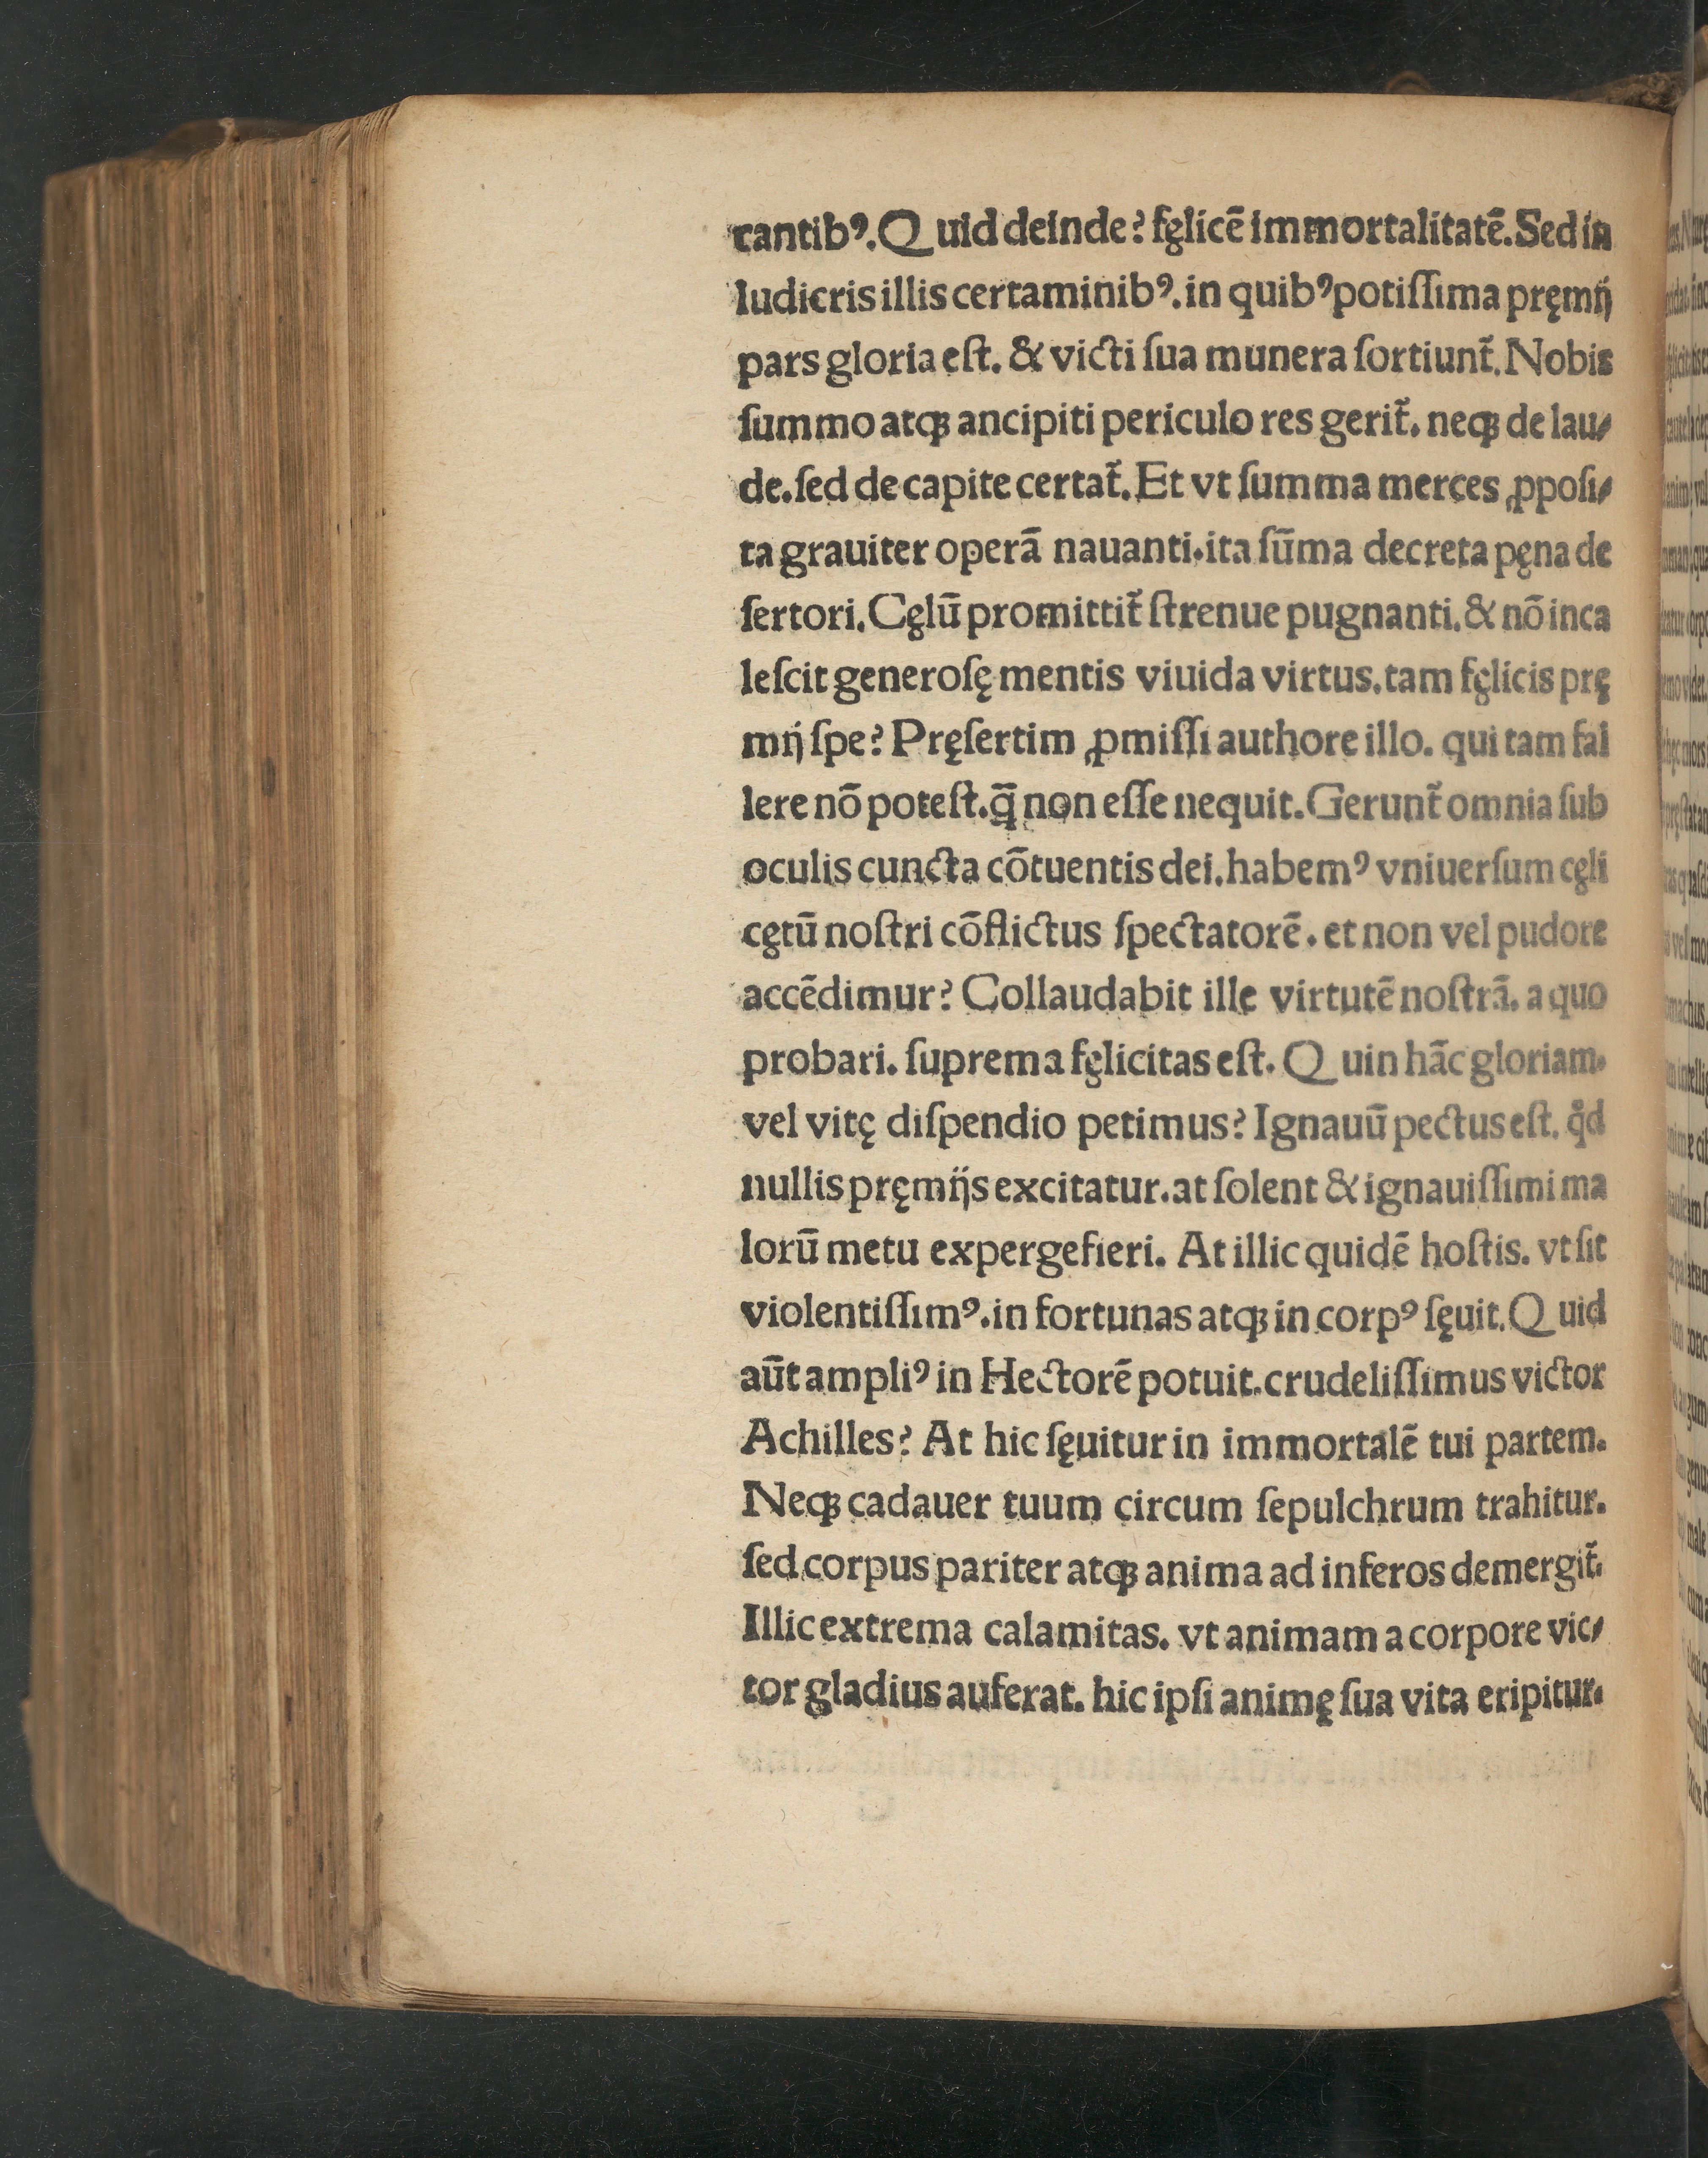 cantibꝰ. Quid deinde? fęlicē immortalitatē. Sed in
ludicris illis certaminibꝰ. in quibꝰ potiſſima pręmij
pars gloria eſt. & victi ſua munera ſortiunt᷑. Nobis
ſummo atqꝫ ancipiti periculo res gerit᷑. neqꝫ de lau⸗
de. ſed de capite certat᷑. Et vt ſumma merces ꝓpoſi⸗
ta grauiter operā nauanti. ita ſūma decreta pęna de
ſertori. Cęlū promittit᷑ ſtrenue pugnanti. & nō inca
leſcit generoſę mentis viuida virtus. tam fęlicis prę
mij ſpe? Pręſertim ꝓmiſſi authore illo. qui tam fal
lere nō poteſt. q̄ non eſſe nequit. Gerunt᷑ omnia ſub
oculis cuncta cōtuentis dei. habemꝰ vniuerſum cęli
cętū noſtri cōflictus ſpectatorē. et non vel pudore
accēdimur? Collaudabit ille virtutē noſtrā. a quo
probari. ſuprema fęlicitas eſt. Quin hāc gloriam.
vel vitę diſpendio petimus? Ignauū pectus eſt. qͦd
nullis pręmijs excitatur. at ſolent & ignauiſſimi ma
lorū metu expergefieri. At illic quidē hoſtis. vt ſit
violentiſſimꝰ. in fortunas atqꝫ in corpꝰ ſęuit. Quid
aūt ampliꝰ in Hectorē potuit. crudeliſſimus victor
Achilles? At hic ſęuitur in immortalē tui partem.
Neqꝫ cadauer tuum circum ſepulchrum trahitur.
ſed corpus pariter atqꝫ anima ad inferos demergit᷑.
Illic extrema calamitas. vt animam a corpore vic⸗
tor gladius auferat. hic ipſi animę ſua vita eripitur.